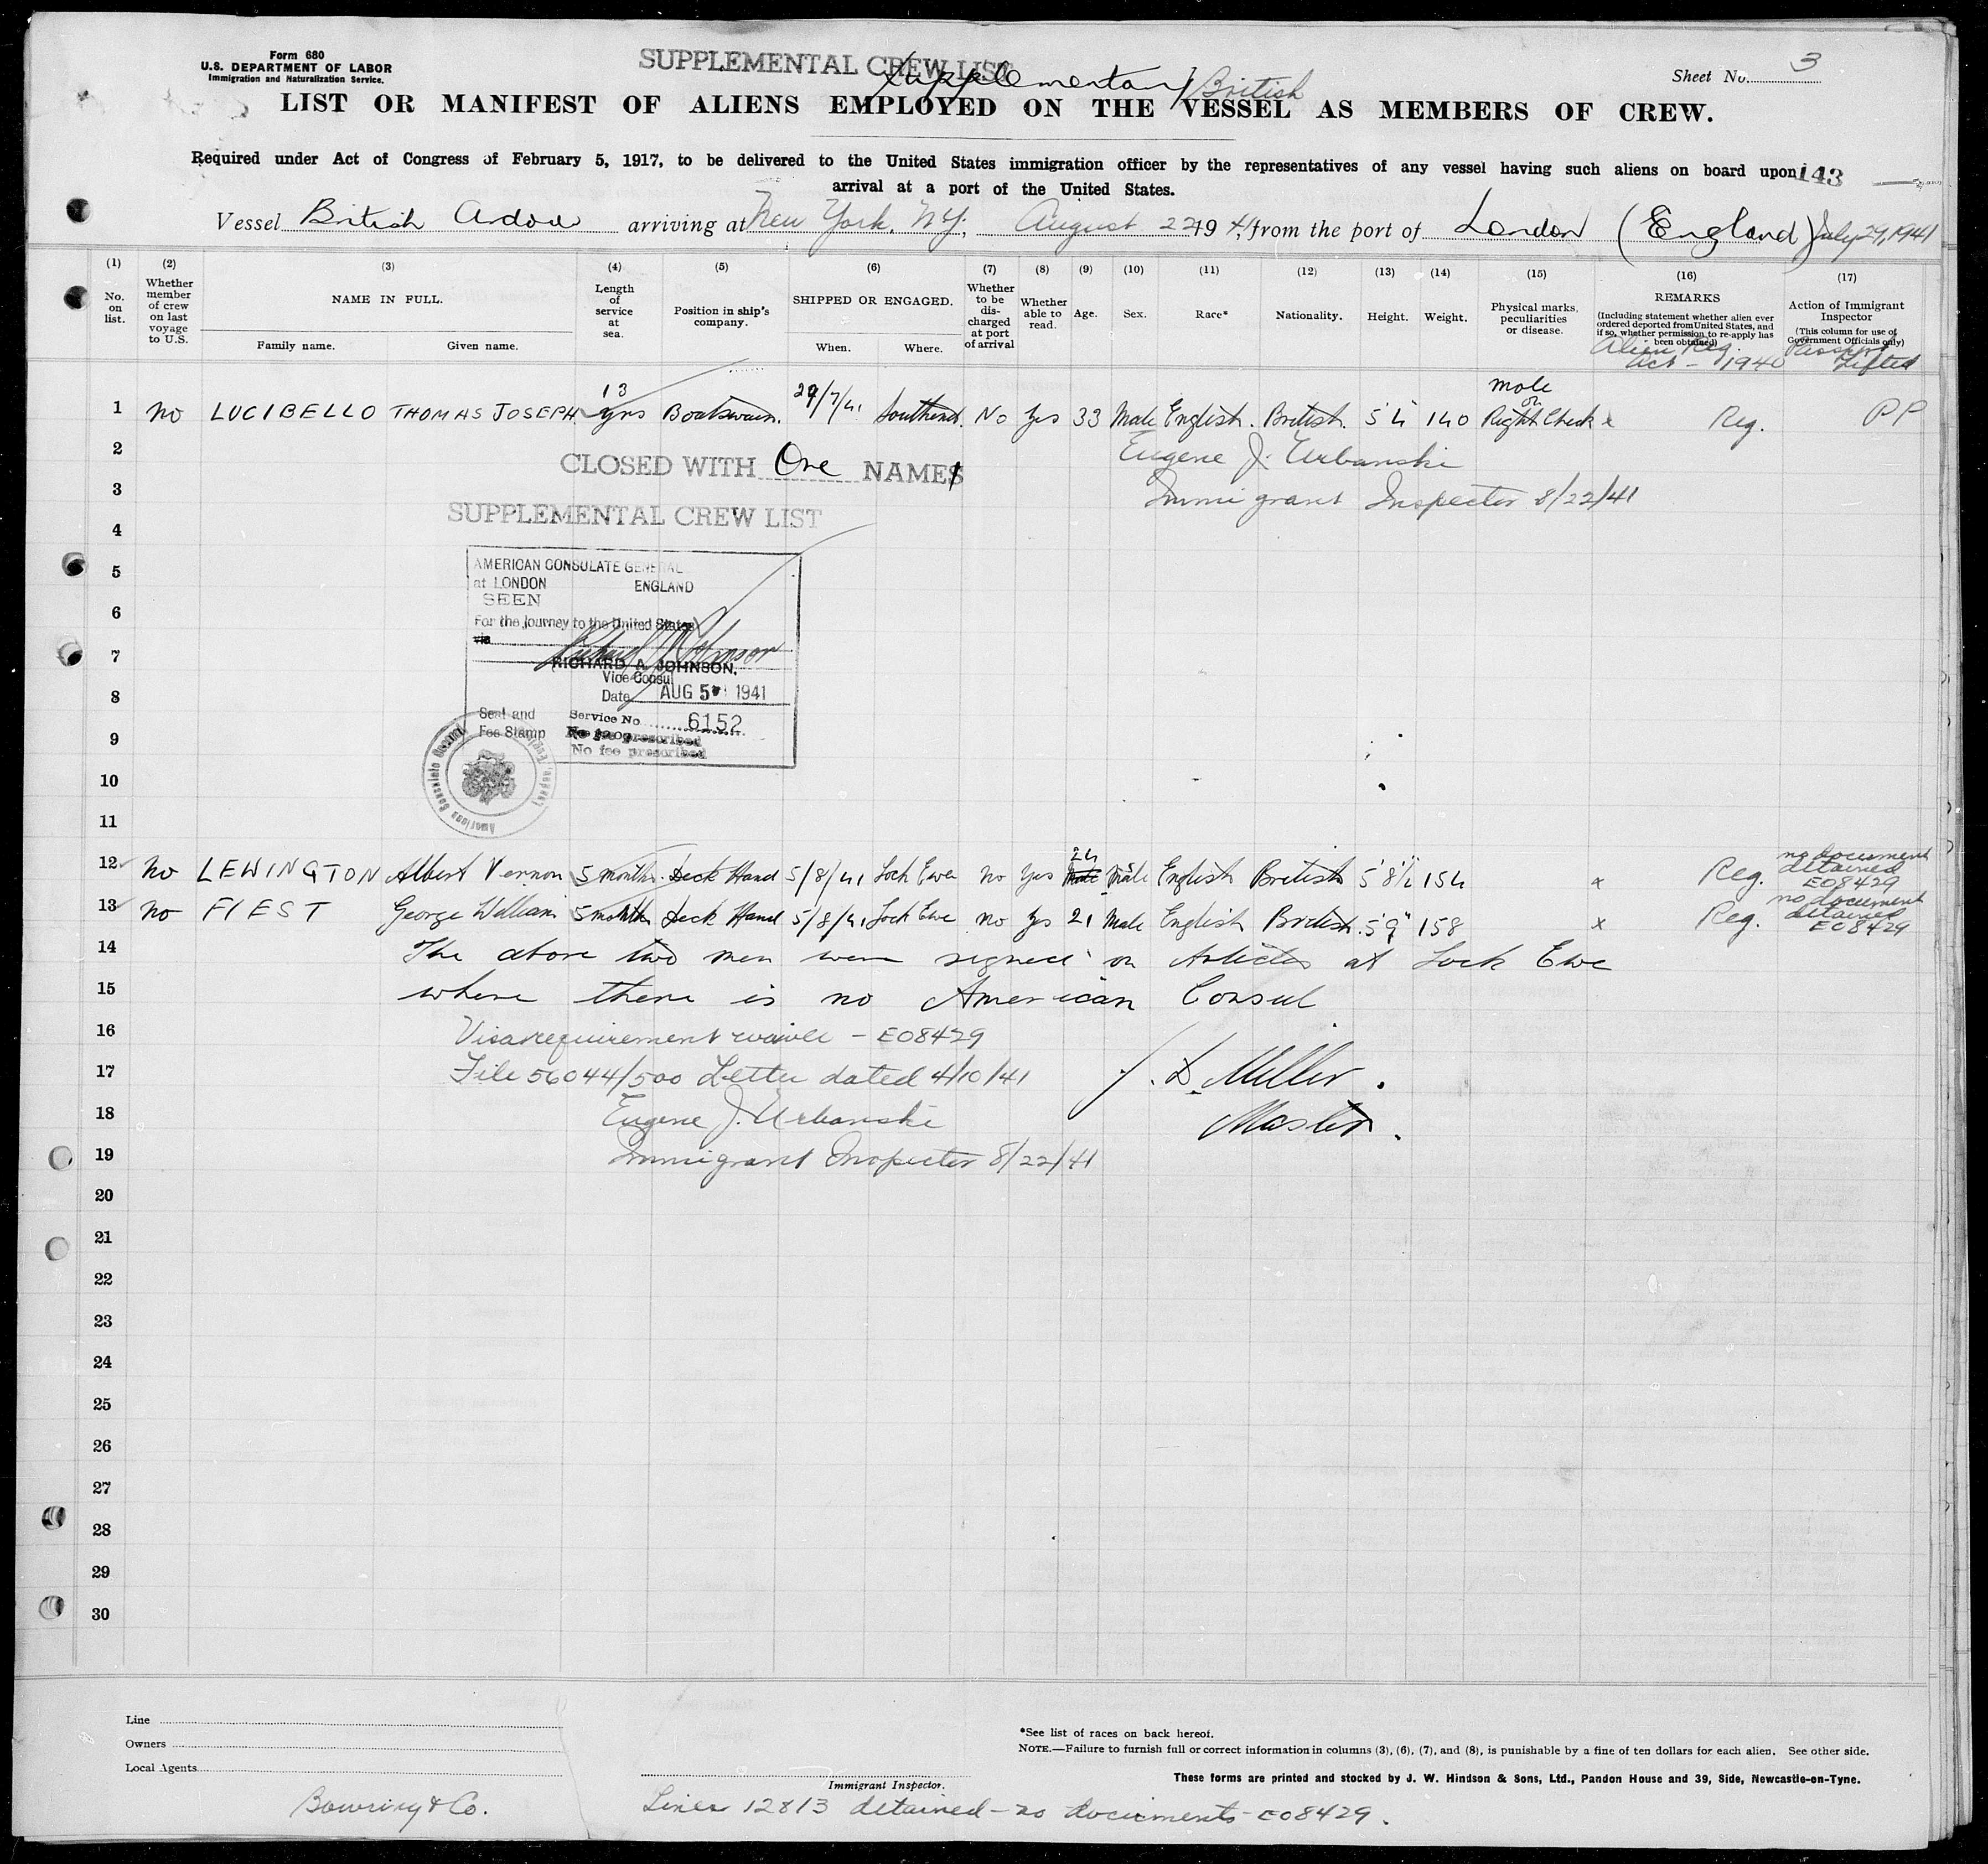 Form 680
U.S. DEPARTMENT OF LABOR
Immigration and Naturalization Service.
SUPPLEMENTAL CREW LIST
Supplementary British
Sheet No. 3
LIST OR MANIFEST OF ALIENS EMPLOYED ON THE VESSEL AS MEMBERS OF CREW.
Required under Act of Congress of February 5, 1917, to be delivered to the United States immigration officer by the representatives of any vessel having such aliens on board upon
143
arrival at a port of the United States.
Vessel British Ardour arriving at New York, NY, August 22 1941, from the port of London (England) July 29, 1941
(1) No. on list.
(2) Whether member of crew on last voyage to U.S.
(3) NAME IN FULL. Family name. Given name.
(4) Length of service at sea.
(5) Position in ship's company.
(6) SHIPPED OR ENGAGED. When. Where.
(7) Whether to be discharged at port of arrival
(8) Whether able to read.
(9) Age.
(10) Sex.
(11) Race*
(12) Nationality.
(13) Height.
(14) Weight.
(15) Physical marks, peculiarities or disease.
(16) REMARKS (Including statement whether alien ever ordered deported from United States, and if so, whether permission to re-apply has been obtained)
Alien Reg. Act - 1940
(17) Action of Immigrant Inspector (This column for use of Government Officials only)
Passport Lifted
1 No LUCIBELLO THOMAS JOSEPH 13 yrs Boatswain. 29/7/41 Southend. No Yes 33 Male English. British. 5'4 140 mole on Right Cheek x Reg. PP
2 CLOSED WITH One NAMES Eugene J. Urbanski
3 SUPPLEMENTAL CREW LIST Immigrant Inspector 8/22/41
4
5
6
7
8
9
10
11
AMERICAN CONSULATE GENERAL
at LONDON ENGLAND
SEEN
For the journey to the United States
via
Richard A Johnson
RICHARD A. JOHNSON,
Vice Consul
Date AUG 5 1941
Seal and Fee Stamp
Service No. 6152
No fee prescribed
No fee prescribed
American Consulate General
12 No LEWINGTON Albert Vernon 5 months. Deck Hand 5/8/41 Loch Ewe no Yes 24 Male English British 5'8½ 154 x Reg. no document detained EO8429
13 No FIEST George William 5 months Deck Hand 5/8/41 Loch Ewe no Yes 21 Male English British. 5'9" 158 x Reg. no document detained EO8429
14 The above two men were signed on Articles at Loch Ewe
15 where there is no American Consul
16 Visa requirement waived - EO8429
17 File 56044/500 Letter dated 4/10/41 J. D. Miller.
18 Eugene J. Urbanski Master.
19 Immigrant Inspector 8/22/41
20
21
22
23
24
25
26
27
28
29
30
Line
Owners
Local Agents
Bowring & Co.
Immigrant Inspector.
Lines 12 & 13 detained - no documents - EO8429.
*See list of races on back hereof.
NOTE.—Failure to furnish full or correct information in columns (3), (6), (7), and (8), is punishable by a fine of ten dollars for each alien. See other side.
These forms are printed and stocked by J. W. Hindson & Sons, Ltd., Pandon House and 39, Side, Newcastle-on-Tyne.